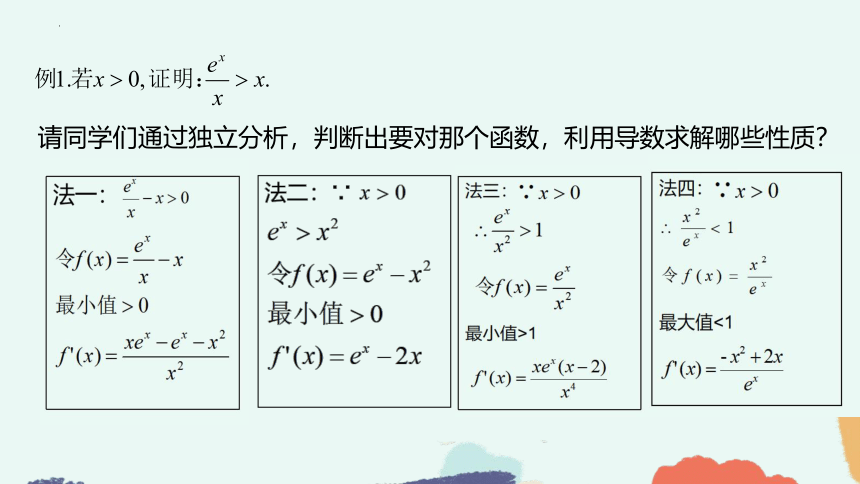 例1.若x > 0, 证明: e^x/x > x.
请同学们通过独立分析，判断出要对那个函数，利用导数求解哪些性质？
法一： e^x/x − x > 0
令f(x) = e^x/x − x
最小值 > 0
f'(x) = (xe^x − e^x − x^2)/x^2
法二：∵ x > 0
e^x > x^2
令f(x) = e^x − x^2
最小值 > 0
f'(x) = e^x − 2x
法三：∵ x > 0
∴ e^x/x^2 > 1
令f(x) = e^x/x^2
最小值>1
f'(x) = xe^x(x − 2)/x^4
法四：∵ x > 0
∴ x^2/e^x < 1
令 f(x) = x^2/e^x
最大值<1
f'(x) = (-x^2 + 2x)/e^x